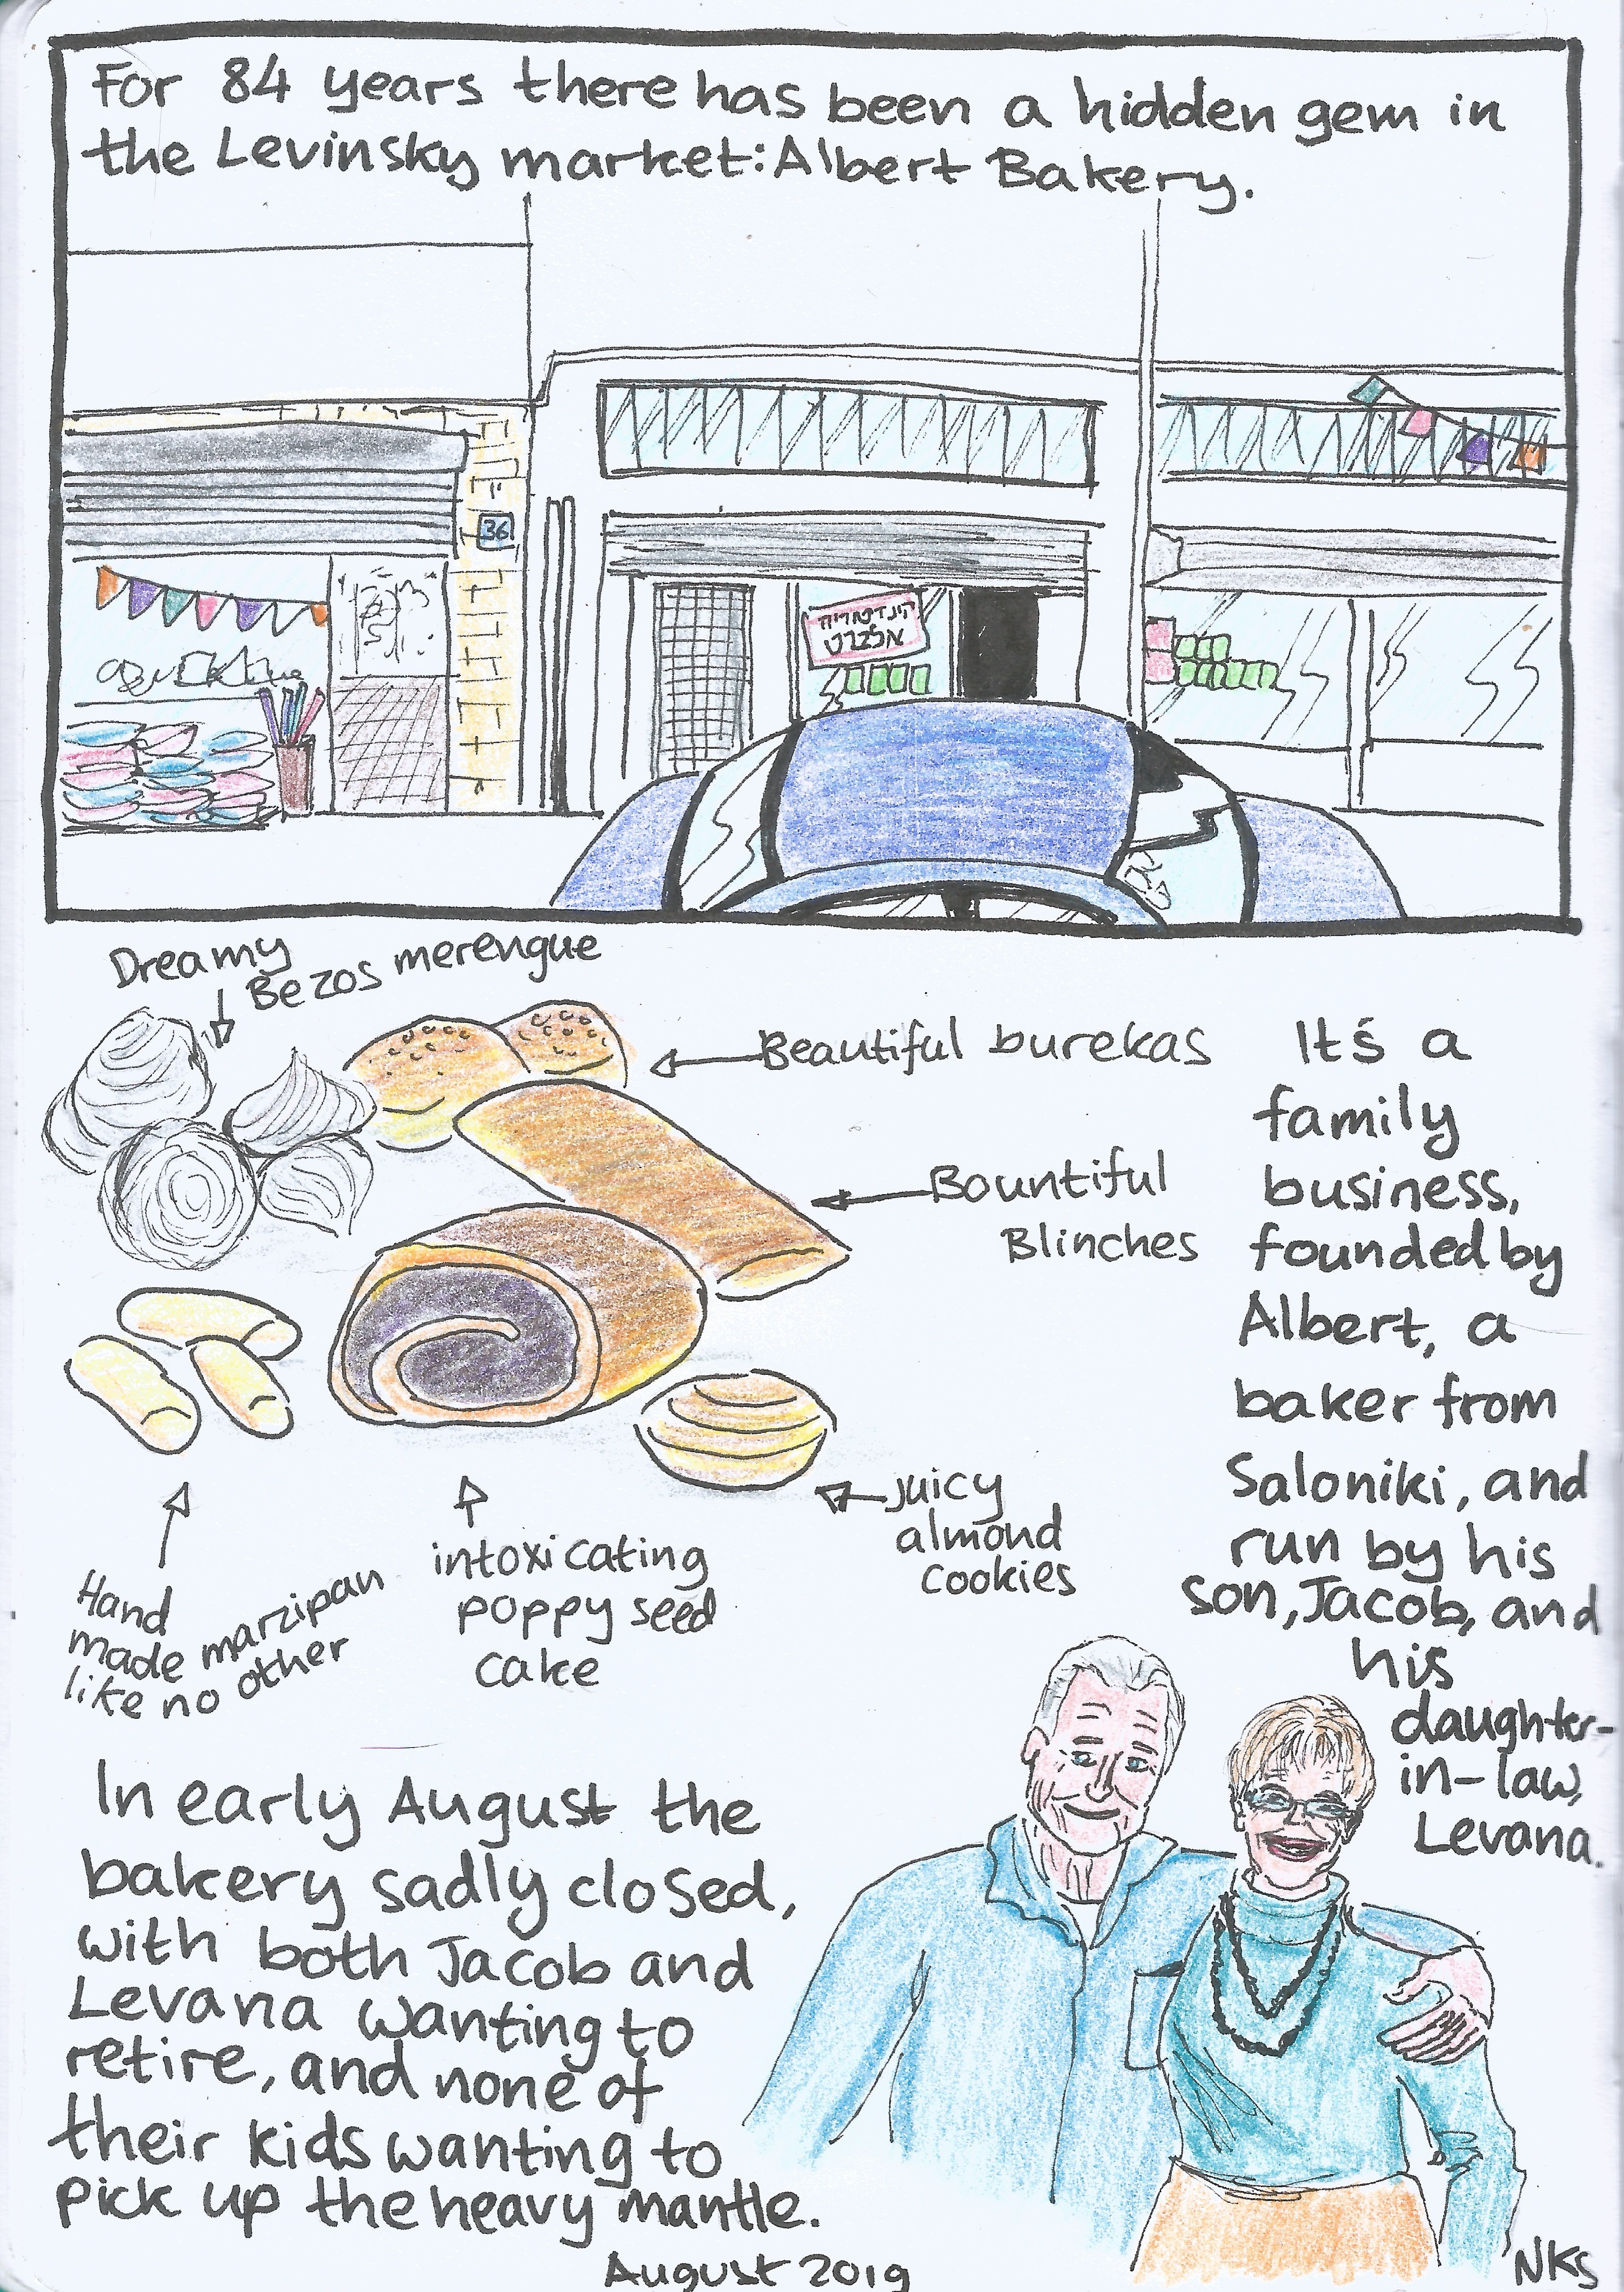 For 84 years there has been a hidden gem in
the Levinsky market: Albert Bakery.
36
קונדיטוריה
אלברט
Dreamy
Bezos merengue
Beautiful burekas
Bountiful
Blinches
juicy
almond
cookies
intoxicating
poppy seed
cake
Hand
made marzipan
like no other
It's a
family
business,
founded by
Albert, a
baker from
Saloniki, and
run by his
son, Jacob, and
his
daughter-
in-law,
Levana.
In early August the
bakery sadly closed,
with both Jacob and
Levana wanting to
retire, and none of
their kids wanting to
pick up the heavy mantle.
August 2019
NKS